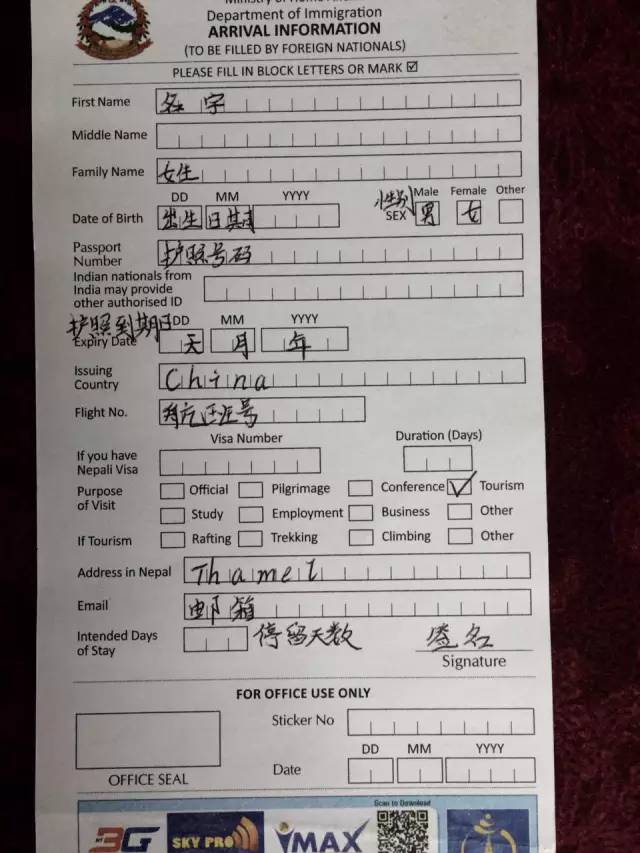 Department of Immigration
ARRIVAL INFORMATION
(TO BE FILLED BY FOREIGN NATIONALS)
PLEASE FILL IN BLOCK LETTERS OR MARK ☑
First Name 名字
Middle Name
Family Name 女生
DD MM YYYY 性别 Male Female Other
Date of Birth 出生日期 SEX 男 女
Passport Number 护照号码
Indian nationals from
India may provide
other authorised ID
护照到期日 DD MM YYYY
Expiry Date 天 月 年
Issuing Country China
Flight No.
Visa Number Duration (Days)
If you have
Nepali Visa
Purpose of Visit Official Pilgrimage Conference ✓ Tourism
Study Employment Business Other
If Tourism Rafting Trekking Climbing Other
Address in Nepal Thamel
Email 邮箱
Intended Days of Stay 停留天数
Signature
FOR OFFICE USE ONLY
Sticker No
DD MM YYYY
OFFICE SEAL Date
Scan to Download
3G SKY PRO YMAX